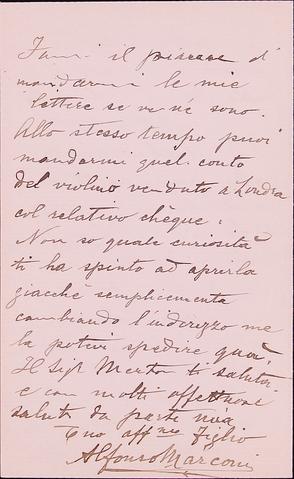 Fammi il piacere d'
mandarmi le mie
lettere se ve n'è sono.
Allo stesso tempo puoi
mandarmi quel conto
del violino venduto a Londra
col relativo chèque.
Non so quale curiosità
ti ha spinto ad aprirla
giacchè semplicemente
cambiando l'indirizzo me
la potevi spedire quà.
Il Sigr ti saluta
e con molti affettuosi
saluti da parte mia
Tuo affmo Figlio
Alfonso Marconi